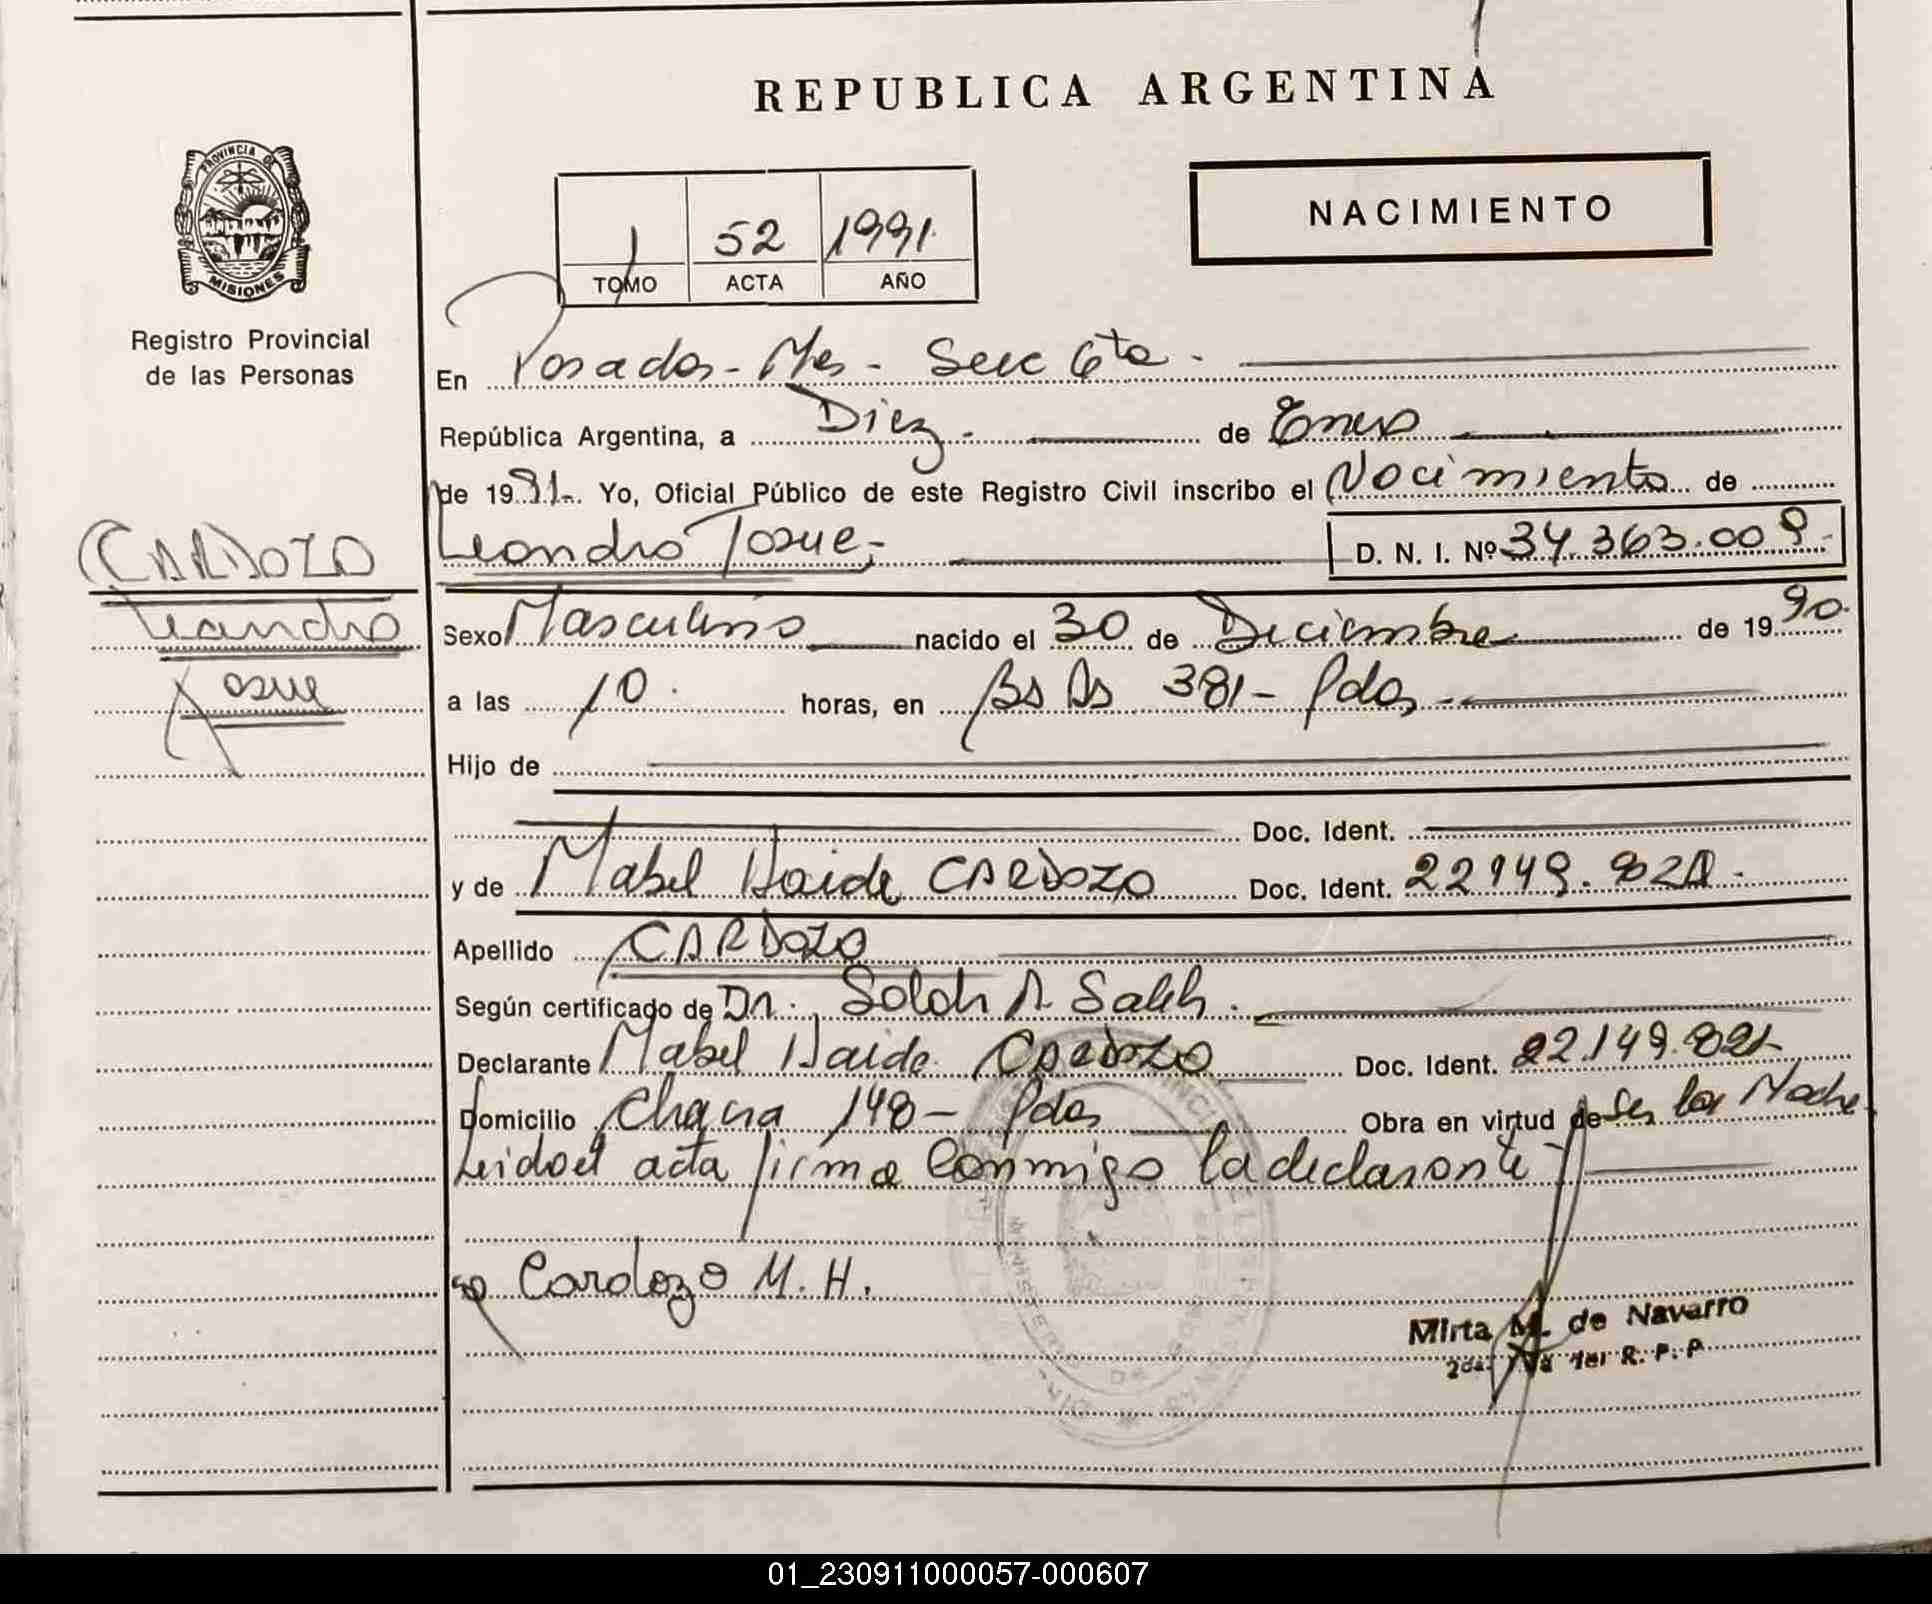 REPUBLICA ARGENTINA
PROVINCIA DE
MISIONES
Registro Provincial
de las Personas
NACIMIENTO
1 52 1991
TOMO ACTA AÑO
En Posadas - Mes - Secc 6ta.
República Argentina, a Diez.- de Enero
de 1991.- Yo, Oficial Público de este Registro Civil inscribo el Nacimiento de
CARDOZO
Leandro
Josue
Leandro Josue.- D. N. I. Nº 34.363.009.-
Sexo Masculino nacido el 30 de Diciembre de 1990.
a las 10. horas, en Bs As 381 - Pdas.-
Hijo de
Doc. Ident.
y de Mabel Haide CARDOZO Doc. Ident. 22149.821.-
Apellido CARDOZO
Según certificado de Dr. A. Saleh.
Declarante Mabel Haide CARDOZO Doc. Ident. 22.149.821
Domicilio Chacra 148 - Pdas Obra en virtud de Ser la Madre
Leida el acta firma conmigo la declarante
Cardozo M. H.
Mirta M. de Navarro
R. P. P.
01_230911000057-000607